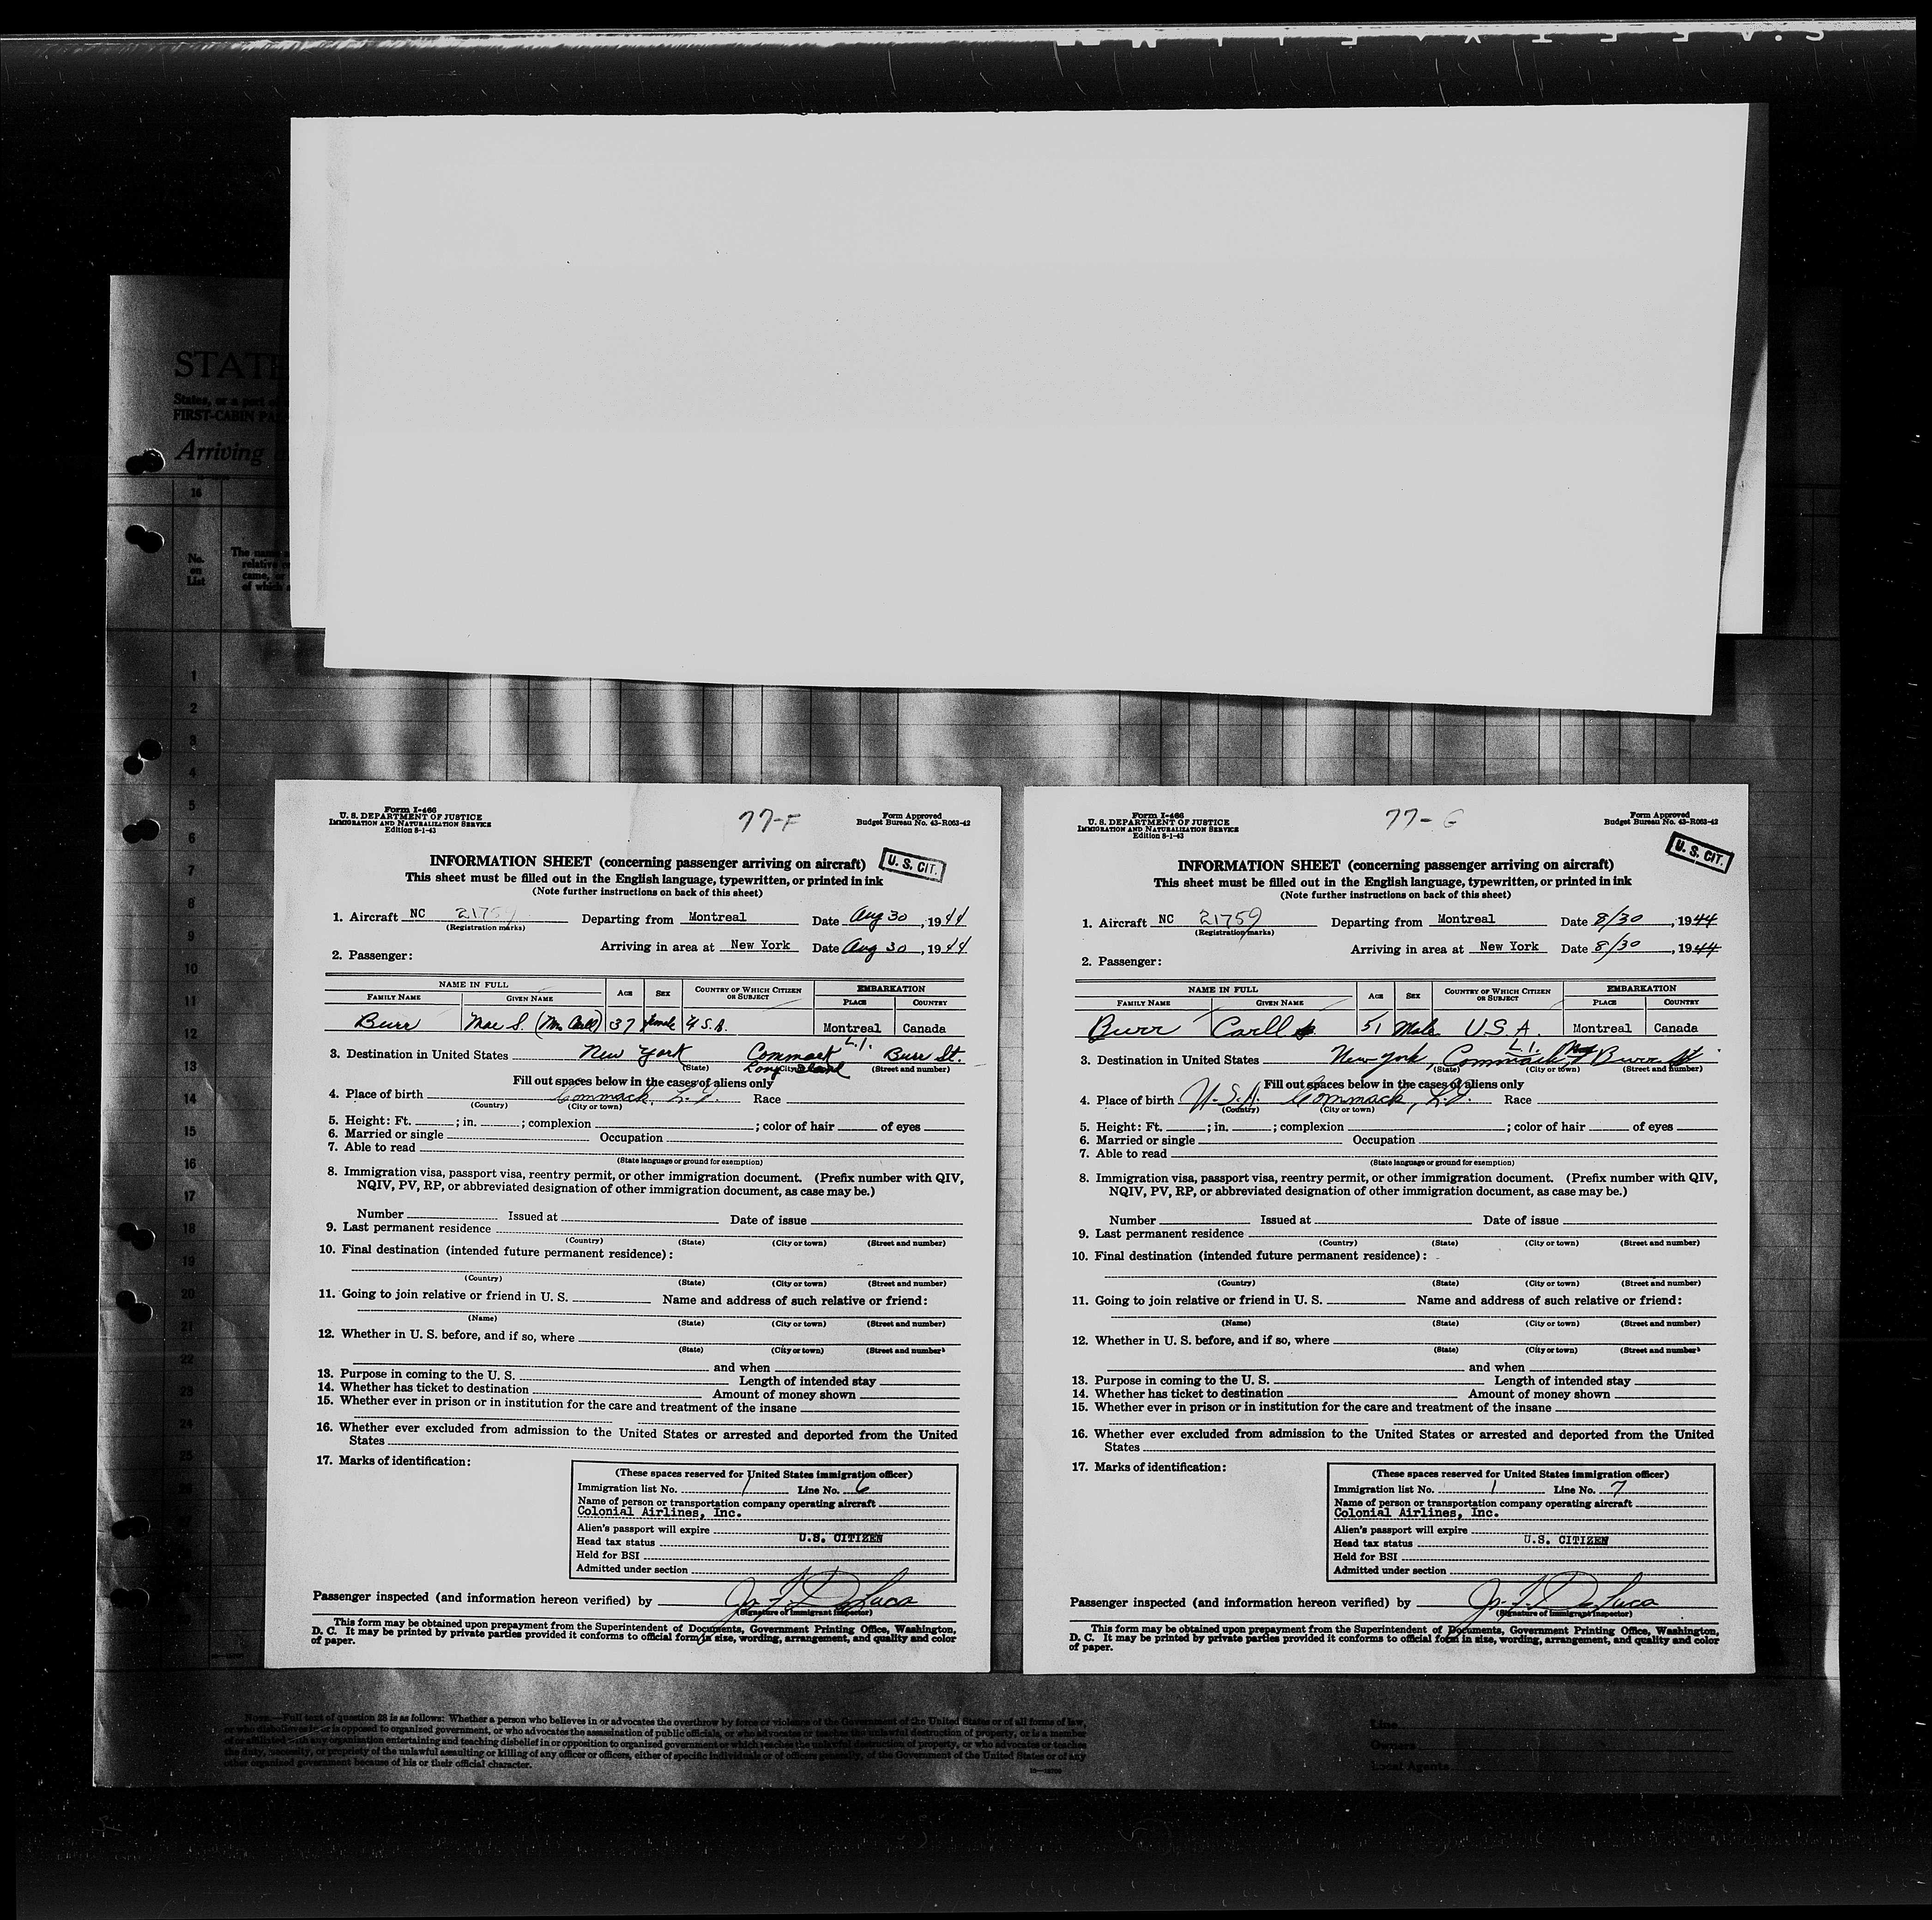 STATE
States, or a port of
FIRST-CABIN PAS
Arriving
16
No.
on
List
The name
relative
came, or
of which
1
2
3
4
5
6
7
8
9
10
11
12
13
14
15
16
17
18
19
20
21
22
23
24
25
Form I-466
U. S. DEPARTMENT OF JUSTICE
IMMIGRATION AND NATURALIZATION SERVICE
Edition 8-1-43
77-F
Form Approved
Budget Bureau No. 43-R063-42
INFORMATION SHEET (concerning passenger arriving on aircraft)
U. S. CIT.
This sheet must be filled out in the English language, typewritten, or printed in ink
(Note further instructions on back of this sheet)
1. Aircraft NC 21759 Departing from Montreal Date Aug 30, 1944
(Registration marks)
Arriving in area at New York Date Aug 30, 1944
2. Passenger:
NAME IN FULL AGE SEX COUNTRY OF WHICH CITIZEN OR SUBJECT EMBARKATION
FAMILY NAME GIVEN NAME PLACE COUNTRY
Burr Mae S. (Mrs Carll) 37 female U.S.A. Montreal Canada
3. Destination in United States New York Commack L.I. Burr St.
Long Island
(State) (City or town) (Street and number)
Fill out spaces below in the cases of aliens only
4. Place of birth Commack, L.I. Race
(Country) (City or town)
5. Height: Ft. ; in. ; complexion ; color of hair of eyes
6. Married or single Occupation
7. Able to read
(State language or ground for exemption)
8. Immigration visa, passport visa, reentry permit, or other immigration document. (Prefix number with QIV,
NQIV, PV, RP, or abbreviated designation of other immigration document, as case may be.)
Number Issued at Date of issue
9. Last permanent residence
(Country) (State) (City or town) (Street and number)
10. Final destination (intended future permanent residence):
(Country) (State) (City or town) (Street and number)
11. Going to join relative or friend in U. S. Name and address of such relative or friend:
(Name) (State) (City or town) (Street and number)
12. Whether in U. S. before, and if so, where
(State) (City or town) (Street and number)
and when
13. Purpose in coming to the U. S. Length of intended stay
14. Whether has ticket to destination Amount of money shown
15. Whether ever in prison or in institution for the care and treatment of the insane
16. Whether ever excluded from admission to the United States or arrested and deported from the United
States
17. Marks of identification:
(These spaces reserved for United States immigration officer)
Immigration list No. 1 Line No. 6
Name of person or transportation company operating aircraft
Colonial Airlines, Inc.
Alien's passport will expire
Head tax status U.S. CITIZEN
Held for BSI
Admitted under section
Passenger inspected (and information hereon verified) by Jr. F. De Luca
(Signature of immigrant inspector)
This form may be obtained upon prepayment from the Superintendent of Documents, Government Printing Office, Washington,
D. C. It may be printed by private parties provided it conforms to official form in size, wording, arrangement, and quality and color
of paper.
Form I-466
U. S. DEPARTMENT OF JUSTICE
IMMIGRATION AND NATURALIZATION SERVICE
Edition 8-1-43
77-G
Form Approved
Budget Bureau No. 43-R063-42
U. S. CIT.
INFORMATION SHEET (concerning passenger arriving on aircraft)
This sheet must be filled out in the English language, typewritten, or printed in ink
(Note further instructions on back of this sheet)
1. Aircraft NC 21759 Departing from Montreal Date 8/30, 1944
(Registration marks)
Arriving in area at New York Date 8/30, 1944
2. Passenger:
NAME IN FULL AGE SEX COUNTRY OF WHICH CITIZEN OR SUBJECT EMBARKATION
FAMILY NAME GIVEN NAME PLACE COUNTRY
Burr Carll S. 51 Male U.S.A. Montreal Canada
3. Destination in United States New York, Commack L.I. Burr St
(State) (City or town) (Street and number)
Fill out spaces below in the cases of aliens only
4. Place of birth U.S.A. Commack, L.I. Race
(Country) (City or town)
5. Height: Ft. ; in. ; complexion ; color of hair of eyes
6. Married or single Occupation
7. Able to read
(State language or ground for exemption)
8. Immigration visa, passport visa, reentry permit, or other immigration document. (Prefix number with QIV,
NQIV, PV, RP, or abbreviated designation of other immigration document, as case may be.)
Number Issued at Date of issue
9. Last permanent residence
(Country) (State) (City or town) (Street and number)
10. Final destination (intended future permanent residence):
(Country) (State) (City or town) (Street and number)
11. Going to join relative or friend in U. S. Name and address of such relative or friend:
(Name) (State) (City or town) (Street and number)
12. Whether in U. S. before, and if so, where
(State) (City or town) (Street and number)
and when
13. Purpose in coming to the U. S. Length of intended stay
14. Whether has ticket to destination Amount of money shown
15. Whether ever in prison or in institution for the care and treatment of the insane
16. Whether ever excluded from admission to the United States or arrested and deported from the United
States
17. Marks of identification:
(These spaces reserved for United States immigration officer)
Immigration list No. 1 Line No. 7
Name of person or transportation company operating aircraft
Colonial Airlines, Inc.
Alien's passport will expire
Head tax status U.S. CITIZEN
Held for BSI
Admitted under section
Passenger inspected (and information hereon verified) by Jr. F. De Luca
(Signature of immigrant inspector)
This form may be obtained upon prepayment from the Superintendent of Documents, Government Printing Office, Washington,
D. C. It may be printed by private parties provided it conforms to official form in size, wording, arrangement, and quality and color
of paper.
NOTE.—Full text of question 28 is as follows: Whether a person who believes in or advocates the overthrow by force or violence of the Government of the United States or of all forms of law,
or who disbelieves in or is opposed to organized government, or who advocates the assassination of public officials, or who advocates or teaches the unlawful destruction of property, or is a member
of or affiliated with any organization entertaining and teaching disbelief in or opposition to organized government or which teaches the unlawful destruction of property, or who advocates or teaches
the duty, necessity, or propriety of the unlawful assaulting or killing of any officer or officers, either of specific individuals or of officers generally, of the Government of the United States or of any
other organized government because of his or their official character.
Line
Owners
Local Agents